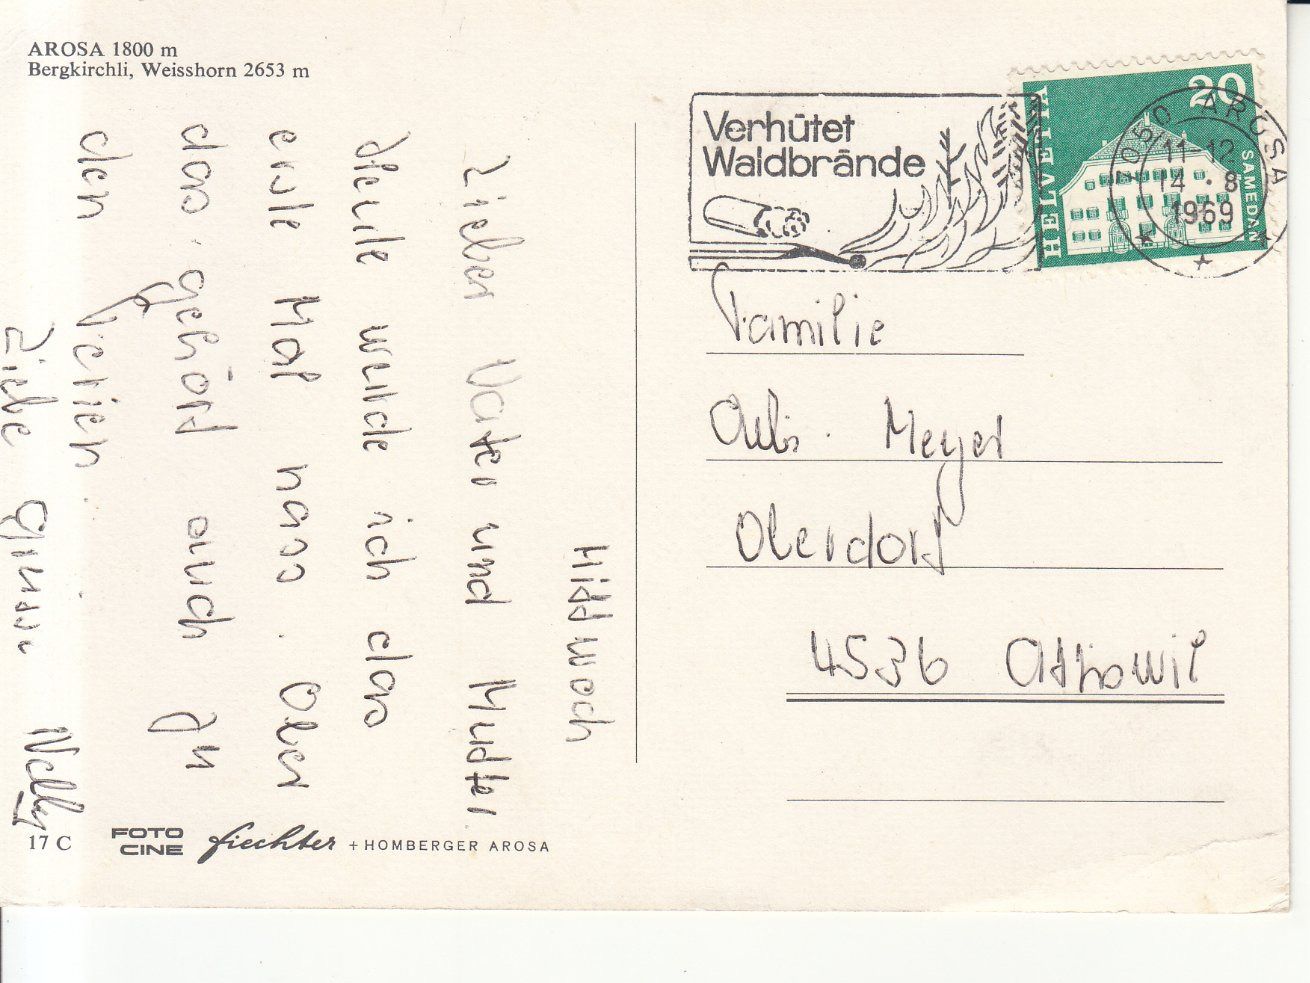 AROSA 1800 m
Bergkirchli, Weisshorn 2653 m
Verhütet
Waldbrände
HELVETIA
20
SAMEDAN
7050 AROSA
11-12
14.8
1969
Middwoch
Lieber Vater und Mudter
Heute wurde ich das
erste Mal nass. Ober
das gehörd auch zu
den Ferien.
Liebe Grüsse Nelly
Familie
Meyer
Oberdorf
4536 Attiswil
17 C
FOTO
CINE
fiechter + HOMBERGER AROSA